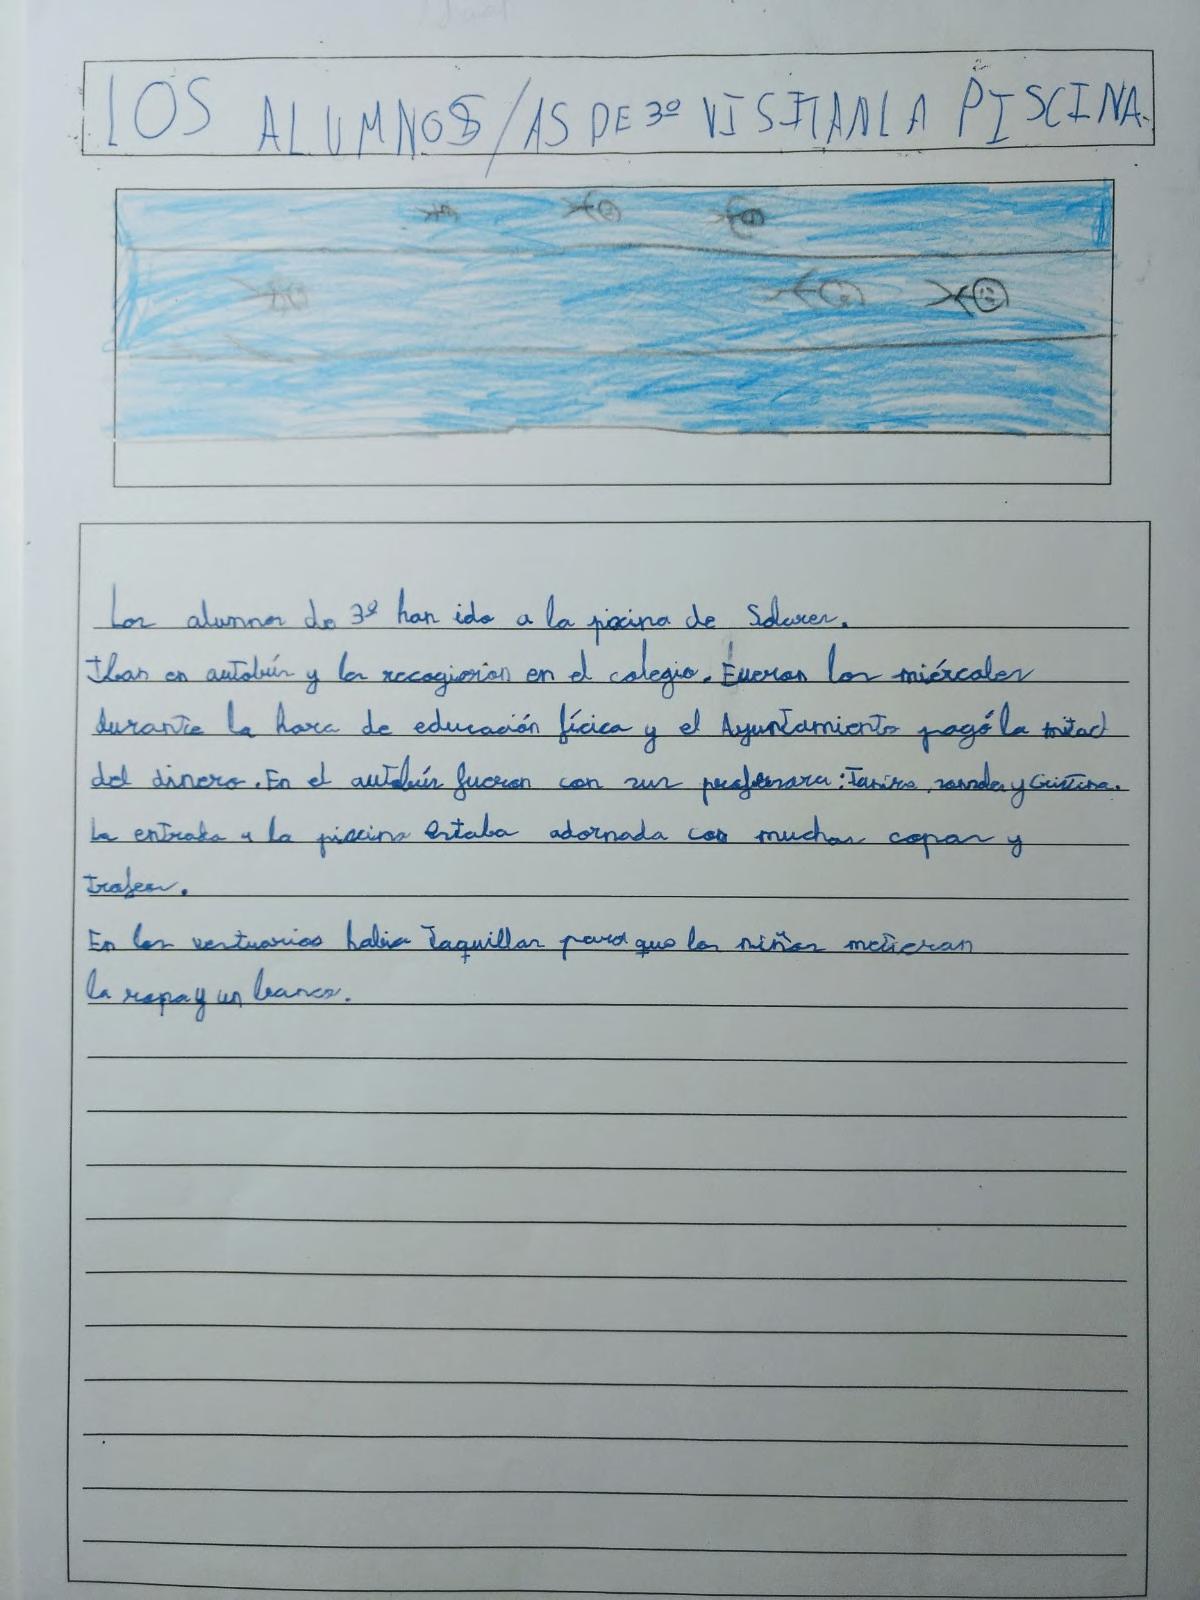 LOS ALUMNOS/AS DE 3º VISITAN LA PISCINA.
Los alumnos de 3º han ido a la piscina de Solares.
Iban en autobús y los recogieron en el colegio. Fueron los miércoles
durante la hora de educación fícica y el Ayuntamiento pagó la mitad
del dinero. En el autobús fueron con sus profesoras: y Cristina.
La entrada a la piscina estaba adornada con muchas copas y
trofeos.
En los vestuarios habia taquillas para que los niños metieran
la ropa y un banco.